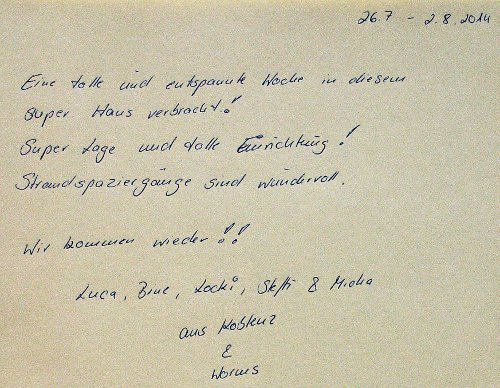 26.7 - 2.8.2014
Eine tolle und entspannte Woche in diesem
super Haus verbracht!
Super Lage und tolle Einrichtung!
Strandspaziergänge sind wundervoll.
Wir kommen wieder!!
Luca, Bine, Locki, Steffi & Micha
aus Koblenz
&
Worms